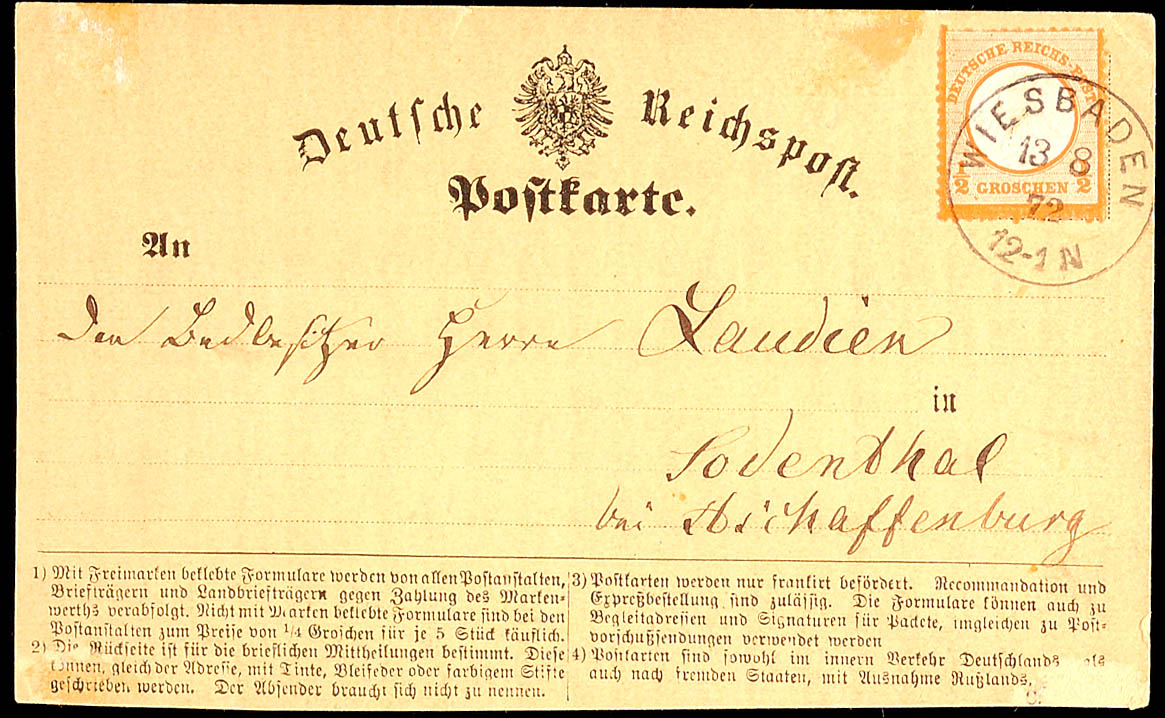 Deutsche Reichspost.
Postkarte.
DEUTSCHE REICHS-POST
1/2 GROSCHEN 1/2
WIESBADEN
13 8
72
12-1 N
An
den Badbesitzer Herrn Laudien
in
Sodenthal
bei Aschaffenburg
1) Mit Freimarken beklebte Formulare werden von allen Postanstalten,
Briefträgern und Landbriefträgern gegen Zahlung des Marken-
werths verabfolgt. Nicht mit Marken beklebte Formulare sind bei den
Postanstalten zum Preise von 1/4 Groschen für je 5 Stück käuflich.
2) Die Rückseite ist für die brieflichen Mittheilungen bestimmt. Diese
können, gleich der Adresse, mit Tinte, Bleifeder oder farbigem Stifte
geschrieben werden. Der Absender braucht sich nicht zu nennen.
3) Postkarten werden nur frankirt befördert. Recommandation und
Expreßbestellung sind zulässig. Die Formulare können auch zu
Begleitadressen und Signaturen für Packete, imgleichen zu Post-
vorschußsendungen verwendet werden
4) Postkarten sind sowohl im innern Verkehr Deutschlands als
auch nach fremden Staaten, mit Ausnahme Rußlands,